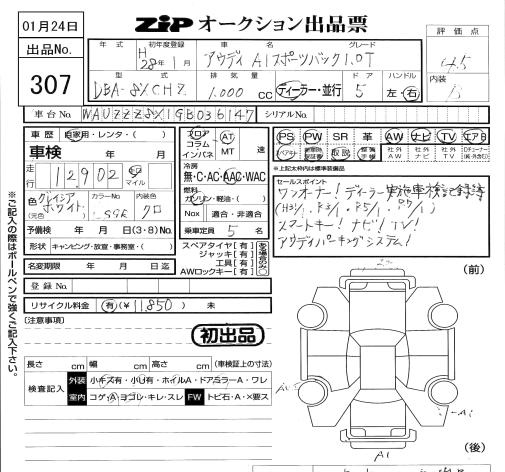 01月24日
ZiP オークション出品票
出品No.
307
年式 初年度登録 車名 グレード
H 28年1月 アウディ A1スポーツバック1.0T
評価点
4.5
型式 排気量 ドア ハンドル
DBA-8XCHZ 1,000 CC ディーラー・並行 5 左・右
内装
車台No. WAUZZZ8X1GB036147 シリアルNo.
車歴 自家用・レンタ・( )
フロア コラム インパネ AT MT 速
PS PW SR 革 AW ナビ TV エアB
車検 年 月
冷房
無・C・AC・AAC・WAC
*上記太枠内は標準装備品
走行 12902 キロ マイル
燃料
ガソリン・軽油・( )
セールスポイント
ワンオーナー! ディーラー実施車検記録簿
スマートキー! ナビ! TV!
アウディパーキングシステム!
色 グレイシアホワイト カラーNo. 内装色 クロ
(元色)
Nox 適合・非適合
予備検 年 月 日(3・8)No.
乗車定員 5 名
形状 キャンピング・放宣・事務室・( )
スペアタイヤ【有】
ジャッキ【有】
工具【有】
AWロックキー【有】
(前)
名変期限 年 月 日迄
登録No.
リサイクル料金 有(¥11850) 未
[注意事項]
初出品
長さ cm 幅 cm 高さ cm (車検証上の寸法)
検査記入 外装 小キズ有・小U有・ホイルA・ドアミラーA・ワレ
室内 コゲ・A・ヨゴレ・キレ・スレ FW トビ石・A・×要ス
A1
(後)
※ご記入の際はボールペンで強くご記入下さい。